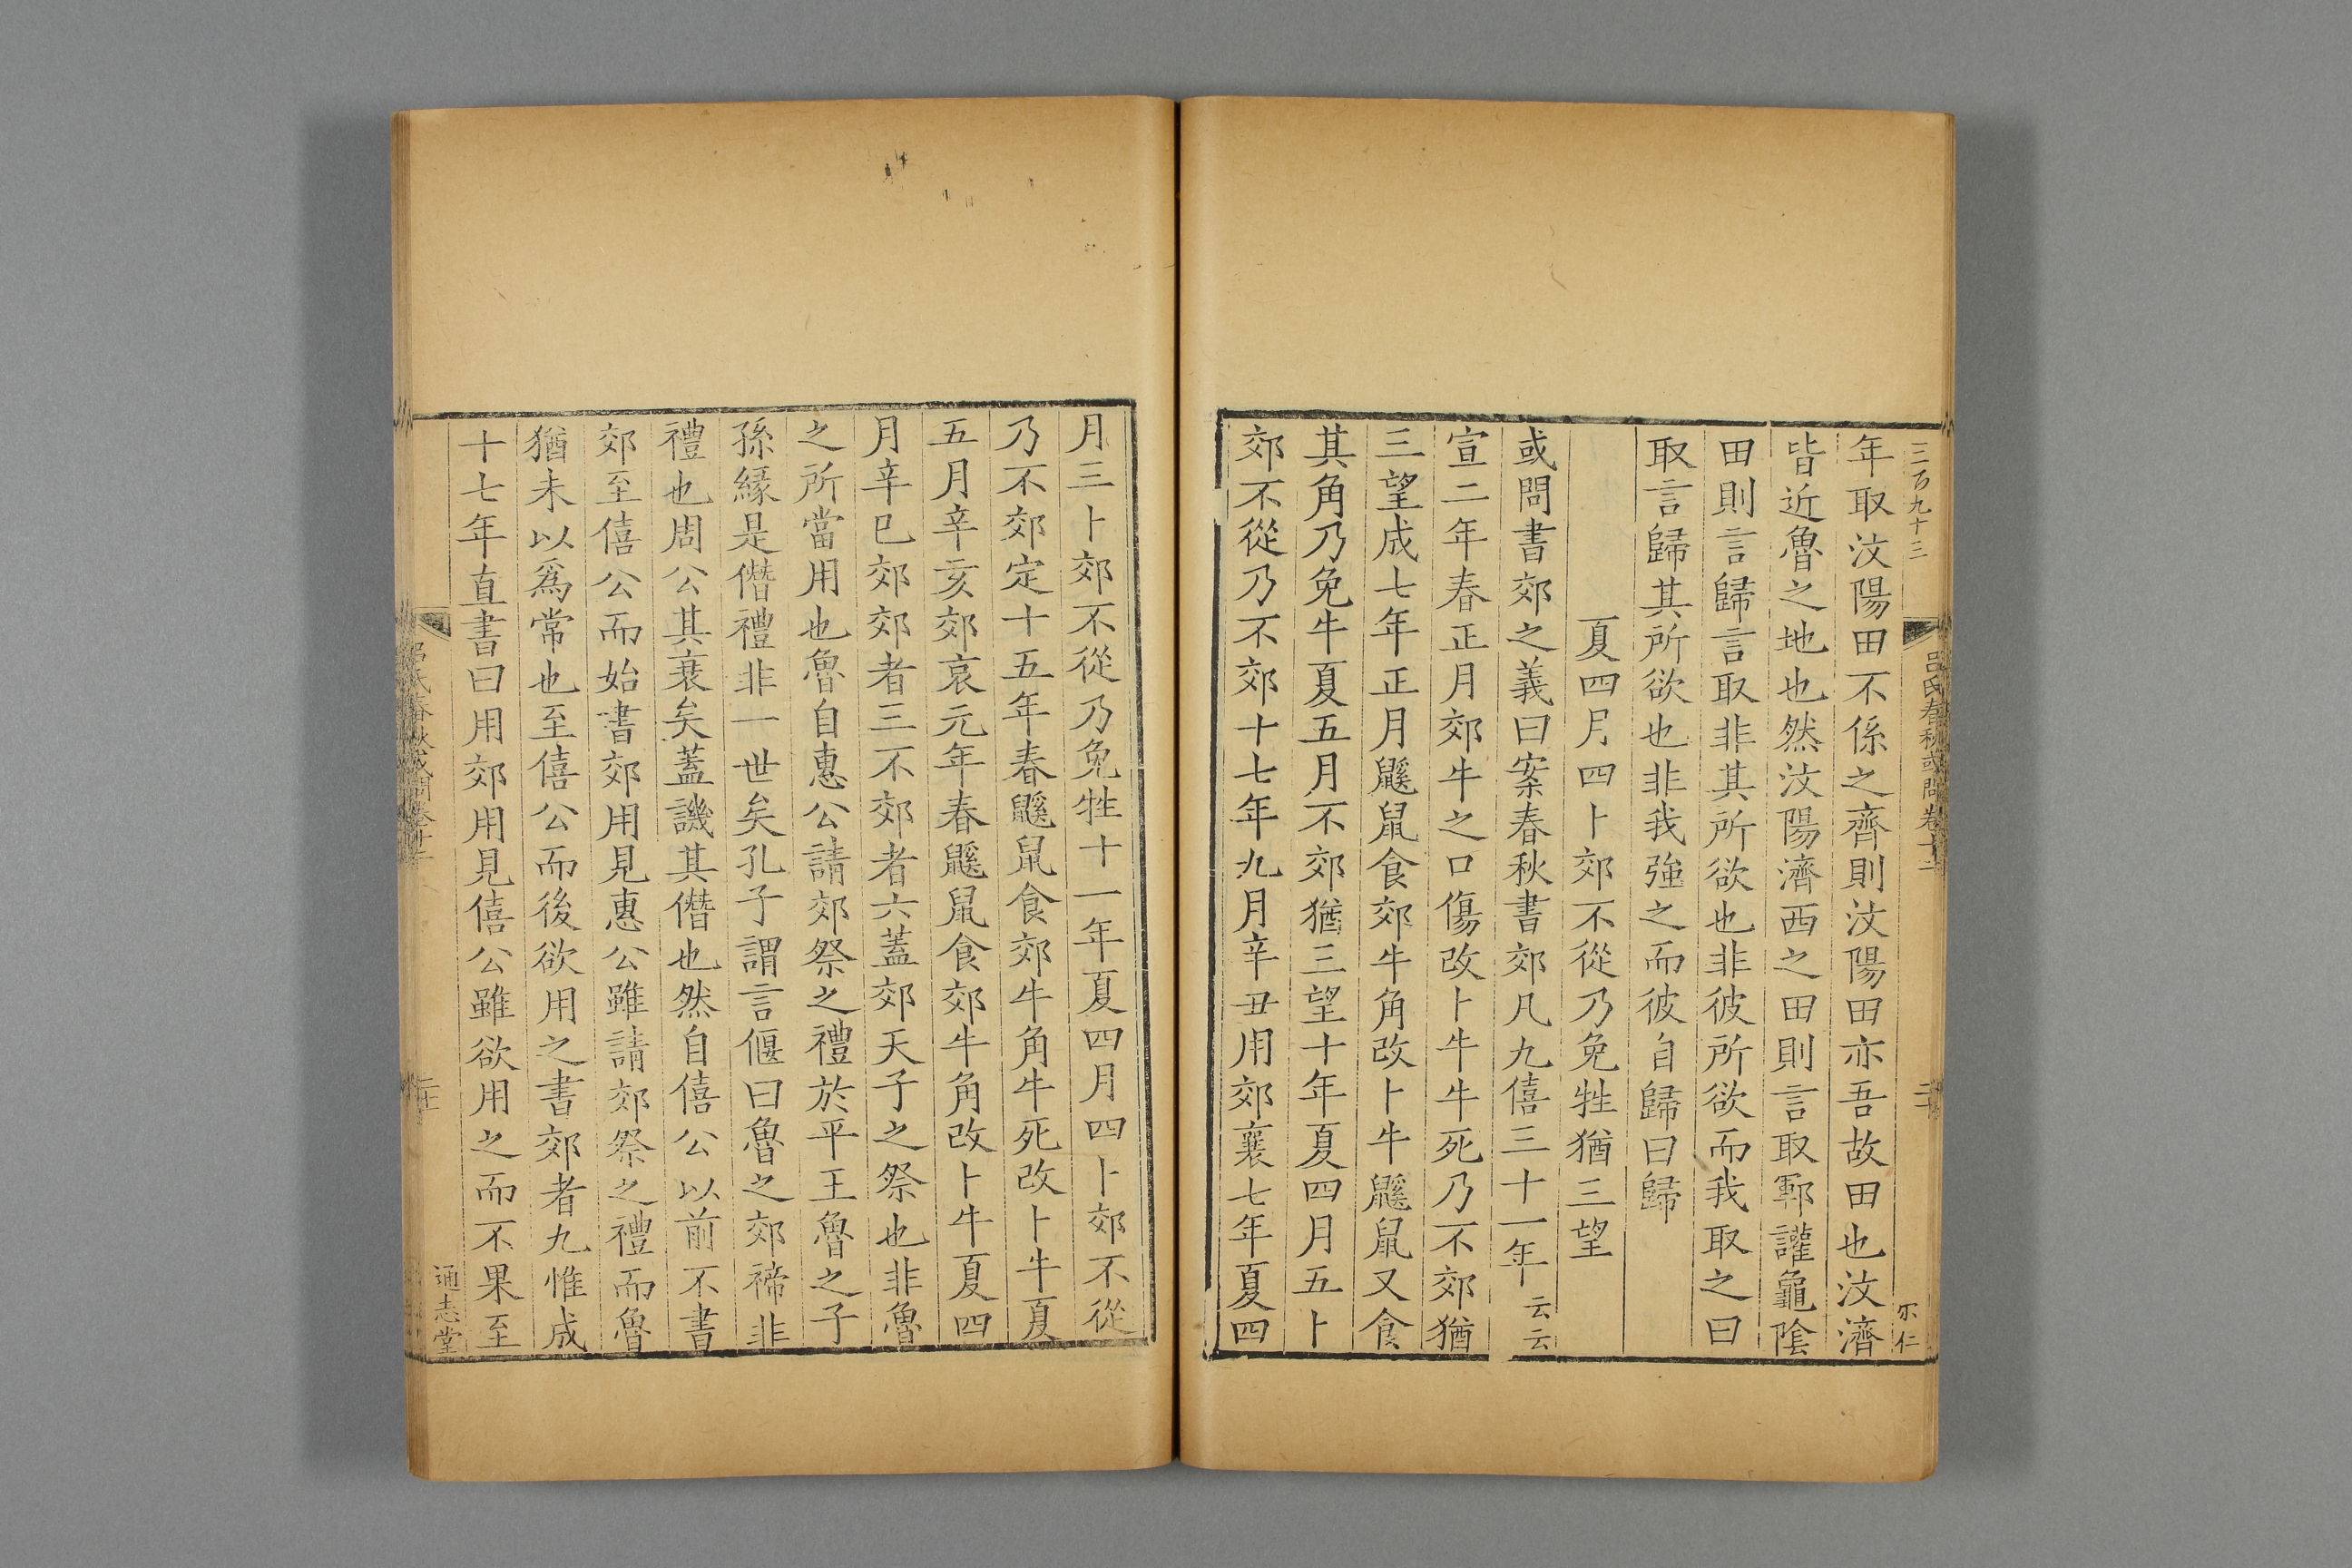 三百九十三
呂氏春秋或問卷十二
尔仁
年取汶陽田不係之齊則汶陽田亦吾故田也汶濟
皆近魯之地也然汶陽濟西之田則言取鄆讙龜陰
田則言歸言取非其所欲也非彼所欲而我取之曰
取言歸其所欲也非我強之而彼自歸曰歸
夏四月四卜郊不從乃免牲猶三望
或問書郊之義曰案春秋書郊凡九僖三十一年云云
宣二年春正月郊牛之口傷改卜牛牛死乃不郊猶
三望成七年正月鼷鼠食郊牛角改卜牛鼷鼠又食
其角乃免牛夏五月不郊猶三望十年夏四月五卜
郊不從乃不郊十七年九月辛丑用郊襄七年夏四
月三卜郊不從乃免牲十一年夏四月四卜郊不從
乃不郊定十五年春鼷鼠食郊牛角牛死改卜牛夏
五月辛亥郊哀元年春鼷鼠食郊牛角改卜牛夏四
月辛巳郊郊者三不郊者六蓋郊天子之祭也非魯
之所當用也魯自惠公請郊祭之禮於平王魯之子
孫緣是僭禮非一世矣孔子謂言偃曰魯之郊禘非
禮也周公其衰矣蓋譏其僭也然自僖公以前不書
郊至僖公而始書郊用見惠公雖請郊祭之禮而魯
猶未以爲常也至僖公而後欲用之書郊者九惟成
十七年直書曰用郊用見僖公雖欲用之而不果至
通志堂